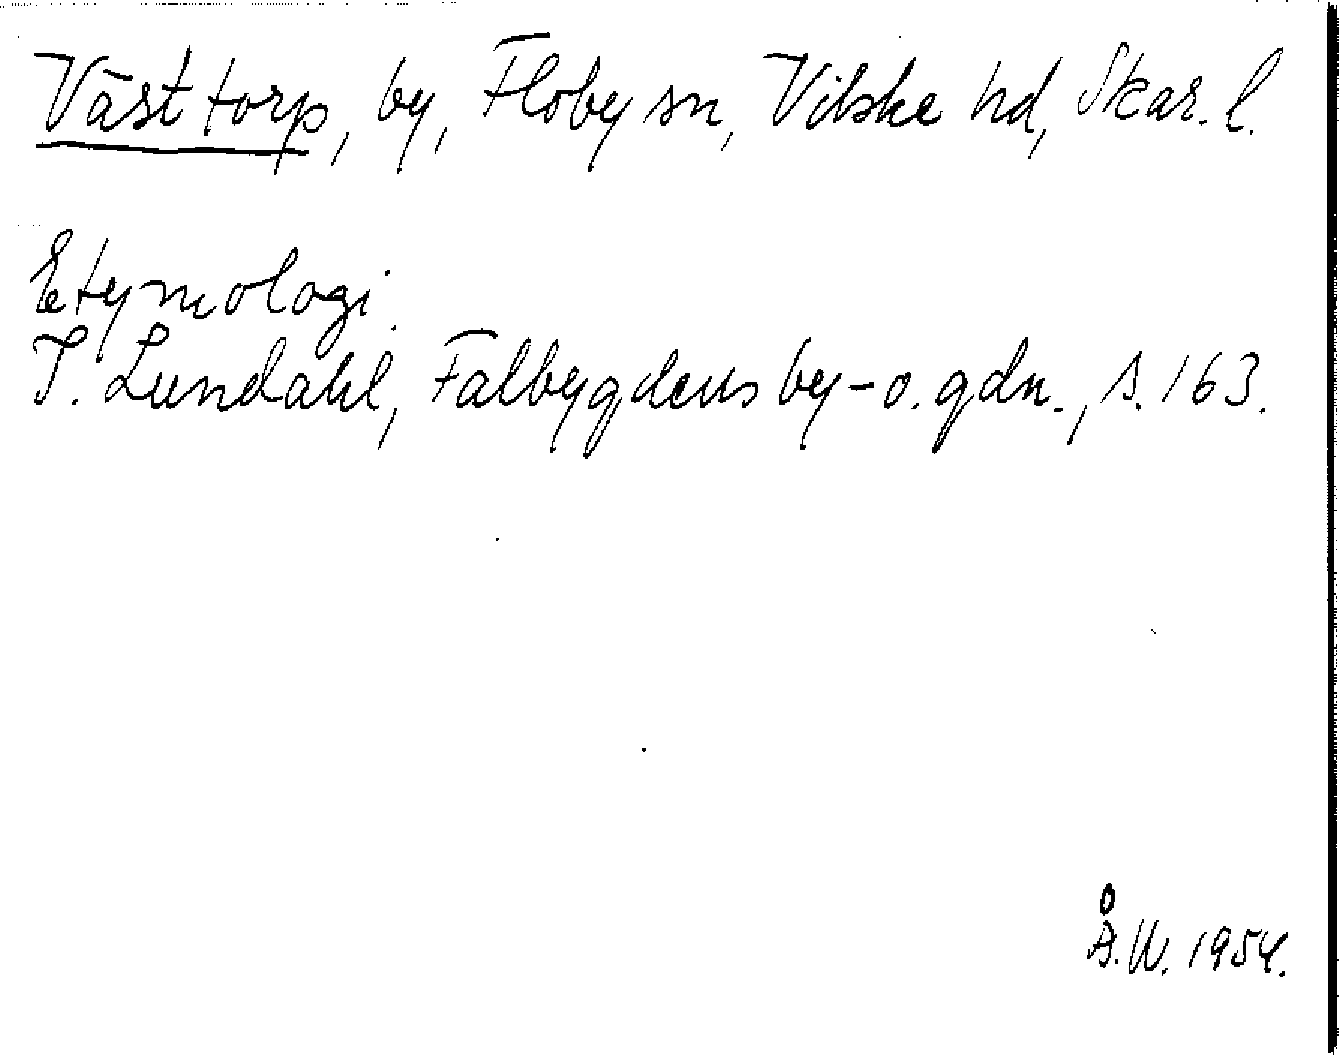 Västtorp, by, Floby sn, Vilske hd, Skar. l.
Etymologi.
I. Lundahl, Falbygdens by- o. gdn., s. 163.
Å.W. 1954.